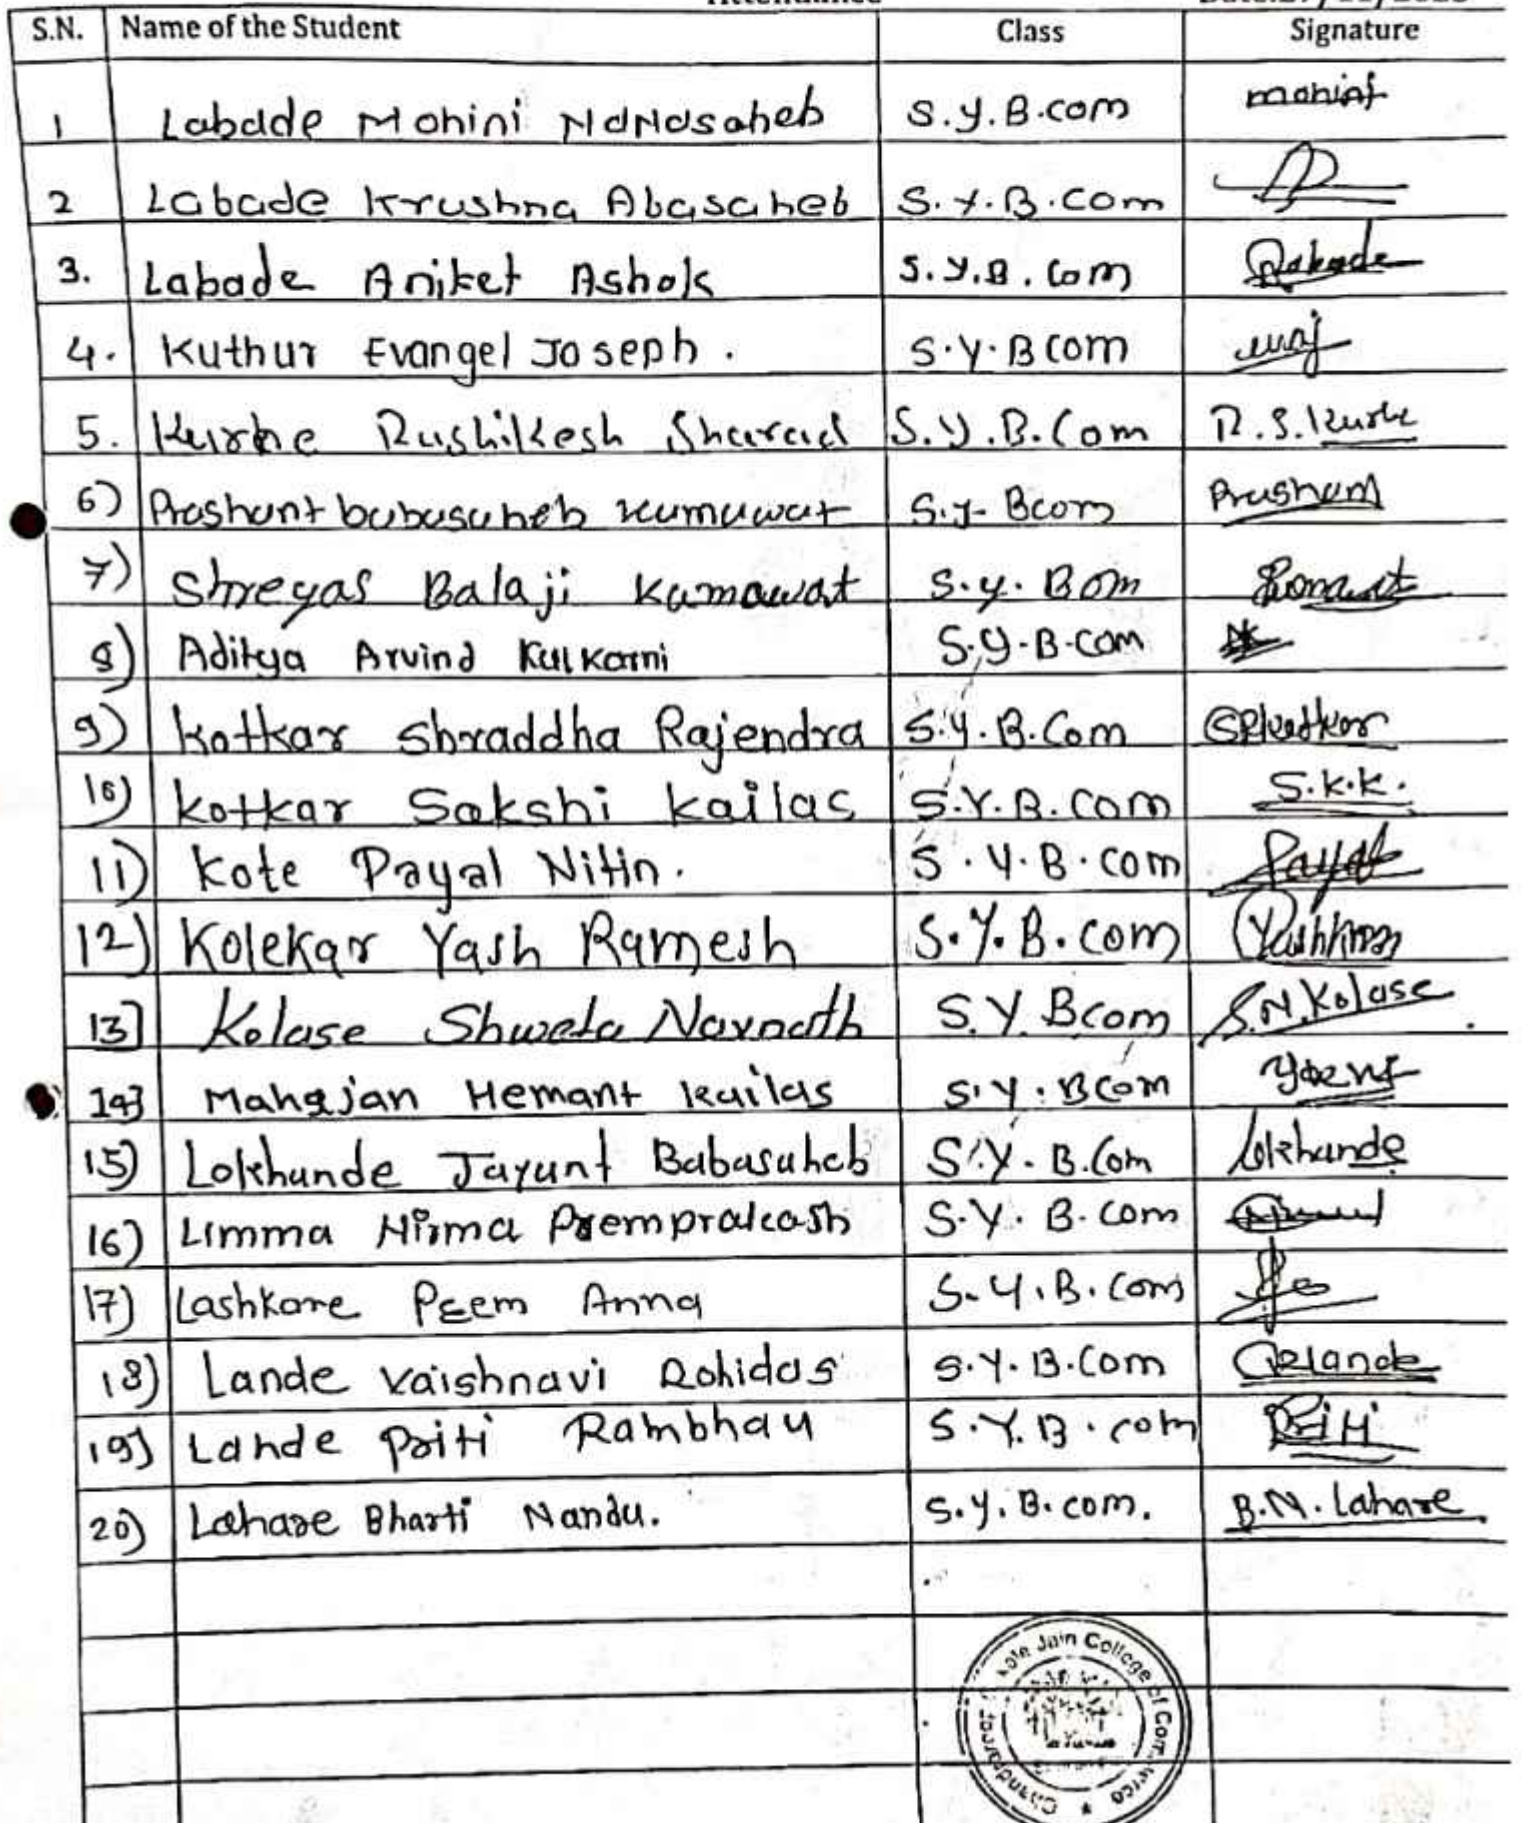 S.N. Name of the Student Class Signature
1 Labade Mohini NaNasaheb S.Y.B.com mohini
2 Labade Krushna Abasaheb S.Y.B.Com
3. Labade Aniket Ashok S.Y.B.Com Labade
4. Kuthur Evangel Joseph. S.Y.B com
5. Kurhe Rushikesh Sharad S.Y.B.Com R.S.Kurhe
6) Prashant babasaheb kumawat S.y- Bcom Prashant
7) Shreyas Balaji Kumawat S.y. Bom
8) Aditya Arvind Kulkarni S.Y-B-com
9) Kotkar Shraddha Rajendra S.Y.B.Com SRKotkar
10) Kotkar Sakshi Kailas S.Y.B.Com S.K.K.
11) Kote Payal Nitin. S.Y.B.com Payal
12) Kolekar Yash Ramesh S.Y.B.com
13] Kolase Shweta Navnath S.Y. Bcom S.N.Kolase
14] Mahajan Hemant Kailas S.Y.Bcom
15) Lokhande Jayant Babasaheb S.Y.B.Com lokhande
16) Limma Nirma Premprakash S.Y.B.com
17) Lashkare Prem Anna S.Y.B.Com
18) Lande Vaishnavi Rohidas S.Y.B.Com
19] Lande Priti Rambhau S.Y.B.com Priti
20) Lahare Bharti Nandu. S.y.B.com. B.N.Lahare.
Kote Jain College of Commerce